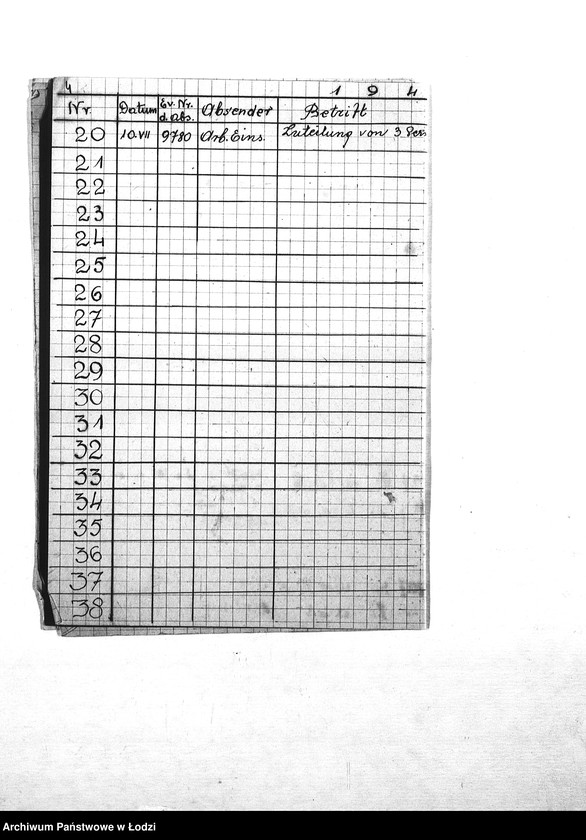 4 1 9 4
Nr. Datum Ev. Nr. d. Abs. Absender Betrifft
20 10.VII 9780 Arb. Eins. Zuteilung von 3 Pers.
21
22
23
24
25
26
27
28
29
30
31
32
33
34
35
36
37
38
Archiwum Państwowe w Łodzi